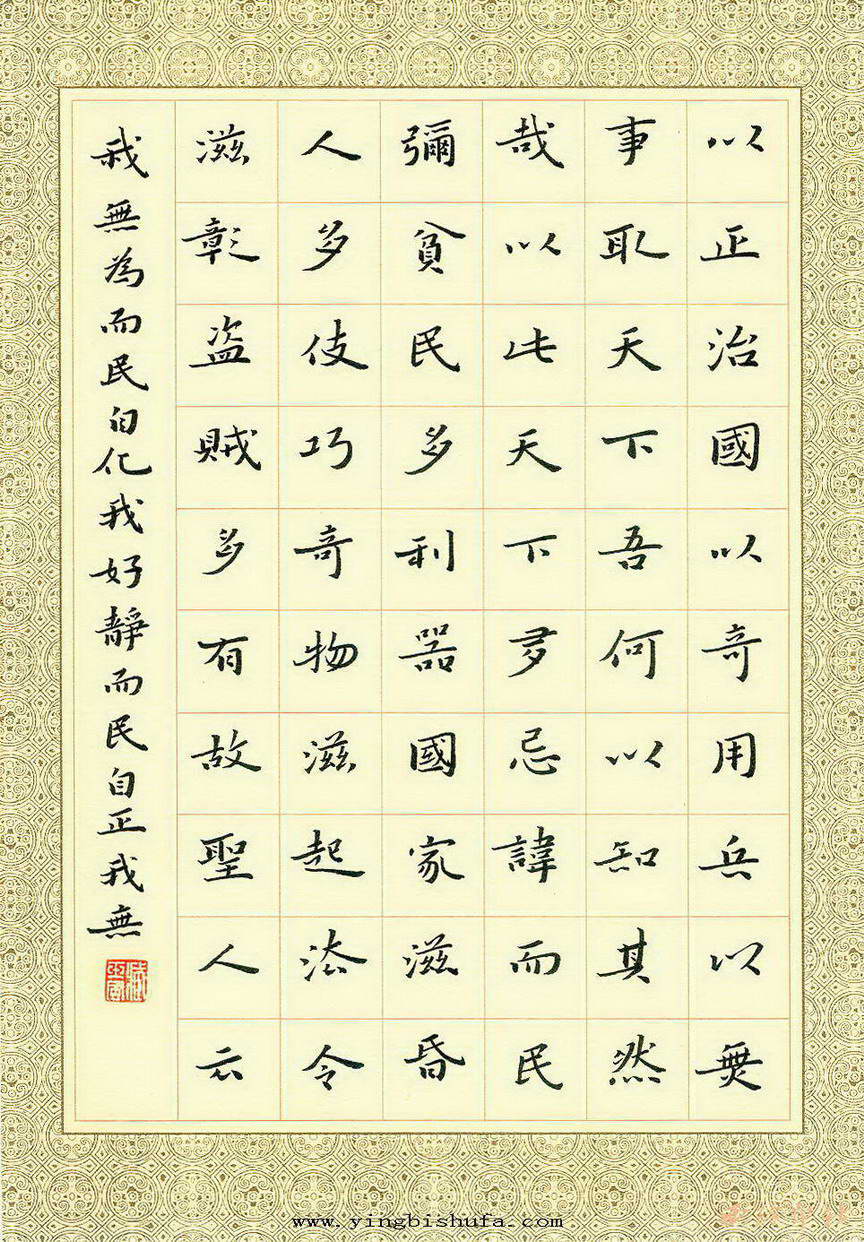 以正治國以奇用兵以無
事取天下吾何以知其然
哉以此天下多忌諱而民
彌貧民多利器國家滋昏
人多伎巧奇物滋起法令
滋彰盗賊多有故聖人云
我無為而民自化我好靜而民自正我無
www.yingbishufa.com